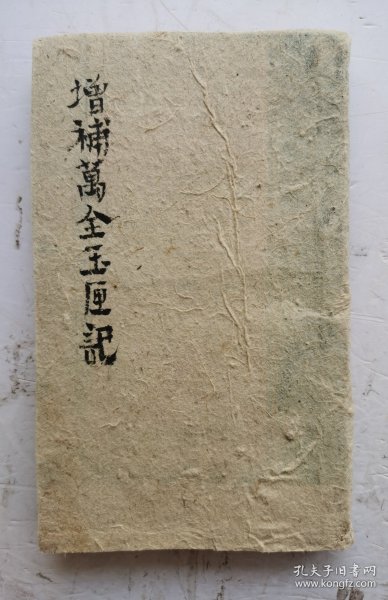 增補萬全玉匣記
孔夫子旧书网
www.kongfz.com